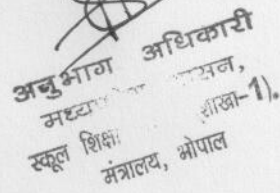 अनुभाग अधिकारी
मध्य
स्कूल शिक्षा शाखा-1).
मंत्रालय, भोपाल